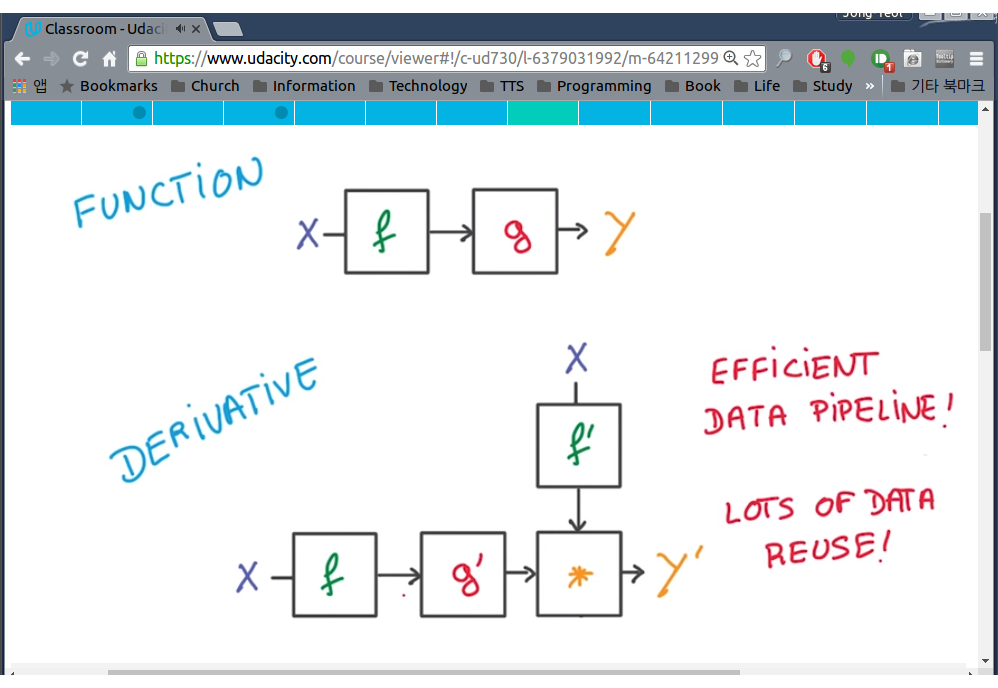 Jong Yeol
Classroom - Udaci
https://www.udacity.com/course/viewer#!/c-ud730/l-6379031992/m-64211299
6
1
앱 Bookmarks Church Information Technology TTS Programming Book Life Study » 기타 북마크
FUNCTION
X f g Y
DERIVATIVE
X
f'
X f g' * Y'
EFFICIENT
DATA PIPELINE!
LOTS OF DATA
REUSE!